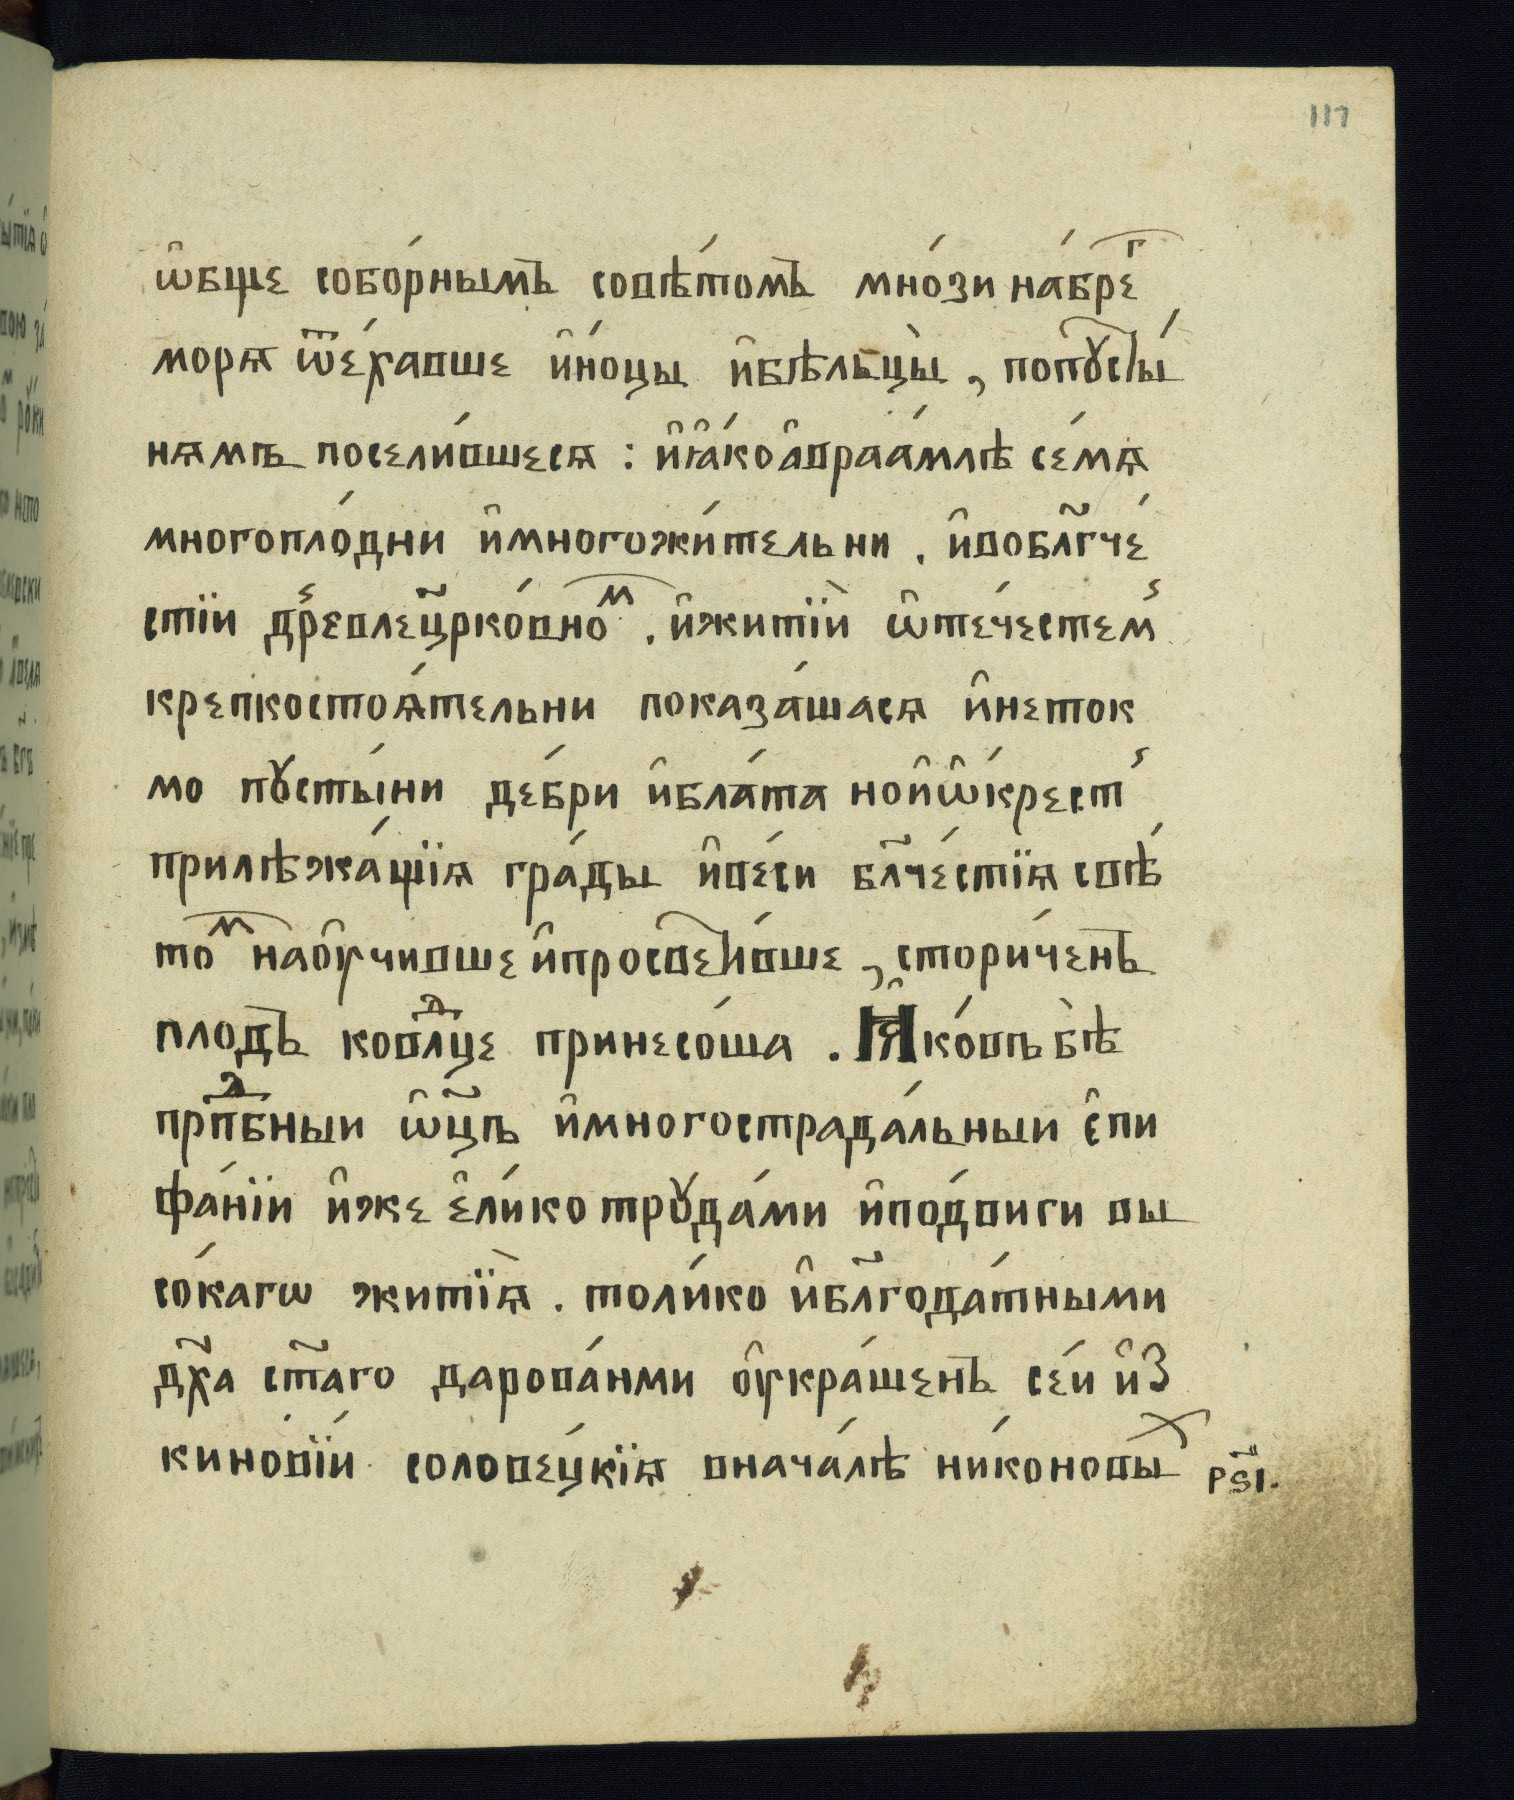 117
ѡ҆бще собо́рнымъ совѣ́томъ мно́зи на́брегⷢ҇
морѧ ѿе́хавше и҆но́цы и҆бѣльцы̀, попꙋсты́
нѧмъ посели́вшесѧ : и҆ꙗ҆́коа҆враа́млѣ се́мѧ
многопло́дни и҆многожи́тельни . и҆вобл҃гче́
стїи др҇евлец҃рко́вноⷨ . и҆житїѝ ѡ҆те́честем҇
крепкостоѧ́тельни показа́шасѧ и҆неток
мо пꙋсты́ни де́бри и҆бла́та нои҆ѡ҆́крест҇
прилѣжа́щїѧ гра́ды и҆ве́си бл҃че́стїѧ свѣ́
тоⷨ наᲂу҆чивше и҆просвети́вше , стори́ченъ
плодъ ковлⷣце принесо́ша . Ꙗ҆ко́въ бѣ
прпⷣбныи ѡ҆ц҃ъ и҆многострада́льныи є҆пи
фа́нїи и҆же є҆ли́ко трꙋда́ми и҆по́двиги вы
со́кагѡ житїѧ̀ . толи́ко и҆бл҃года́тными
дх҃а ст҃аго дарова́нми ᲂу҆кра́шенъ се́и и҆з
кинові́и солове́цкїѧ внача́лѣ ни́коновыⷯ
рѕ҃і.